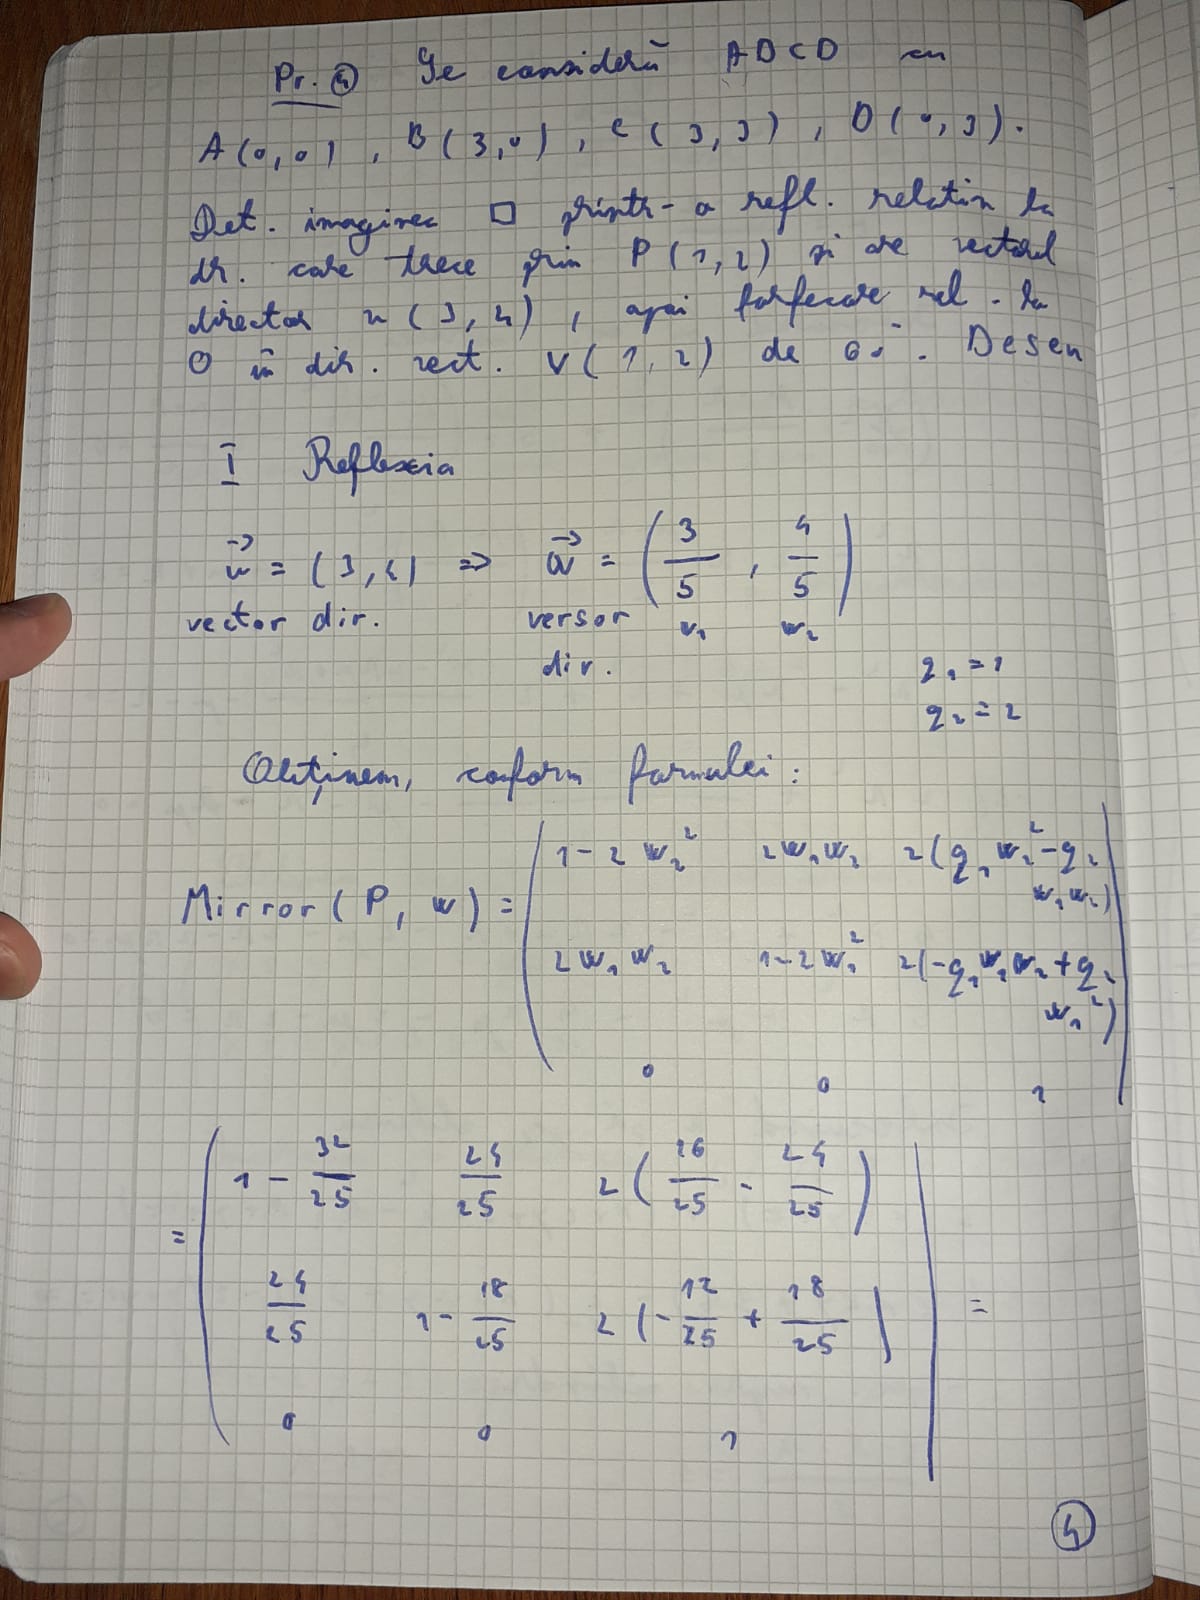 Pr. ④ Se consideră ABCD cu
A(0,0), B(3,0), C(3,3), D(0,3).
Det. imaginea □ printr-o refl. relativ la
dr. care trece prin P(1,2) și are vectorul
director u(3,4), apoi forfecare rel. la
O în dir. vect. v(1,2) de 60°. Desen
I Reflexia
u⃗ = (3,4) => w⃗ = (3/5, 4/5)
vector dir. versor w₁ w₂
dir.
q₁ = 1
q₂ = 2
Obținem, conform formulei:
1 - 2w₂² 2w₁w₂ 2(q₁w₂² - q₂
w₁w₂)
Mirror(P, w) =
2w₁w₂ 1 - 2w₁² 2(-q₁w₁w₂ + q₂
w₁²)
0 0 1
1 - 32/25 24/25 2(16/25 - 24/25)
=
24/25 1 - 18/25 2(-12/25 + 18/25) =
0 0 1
④